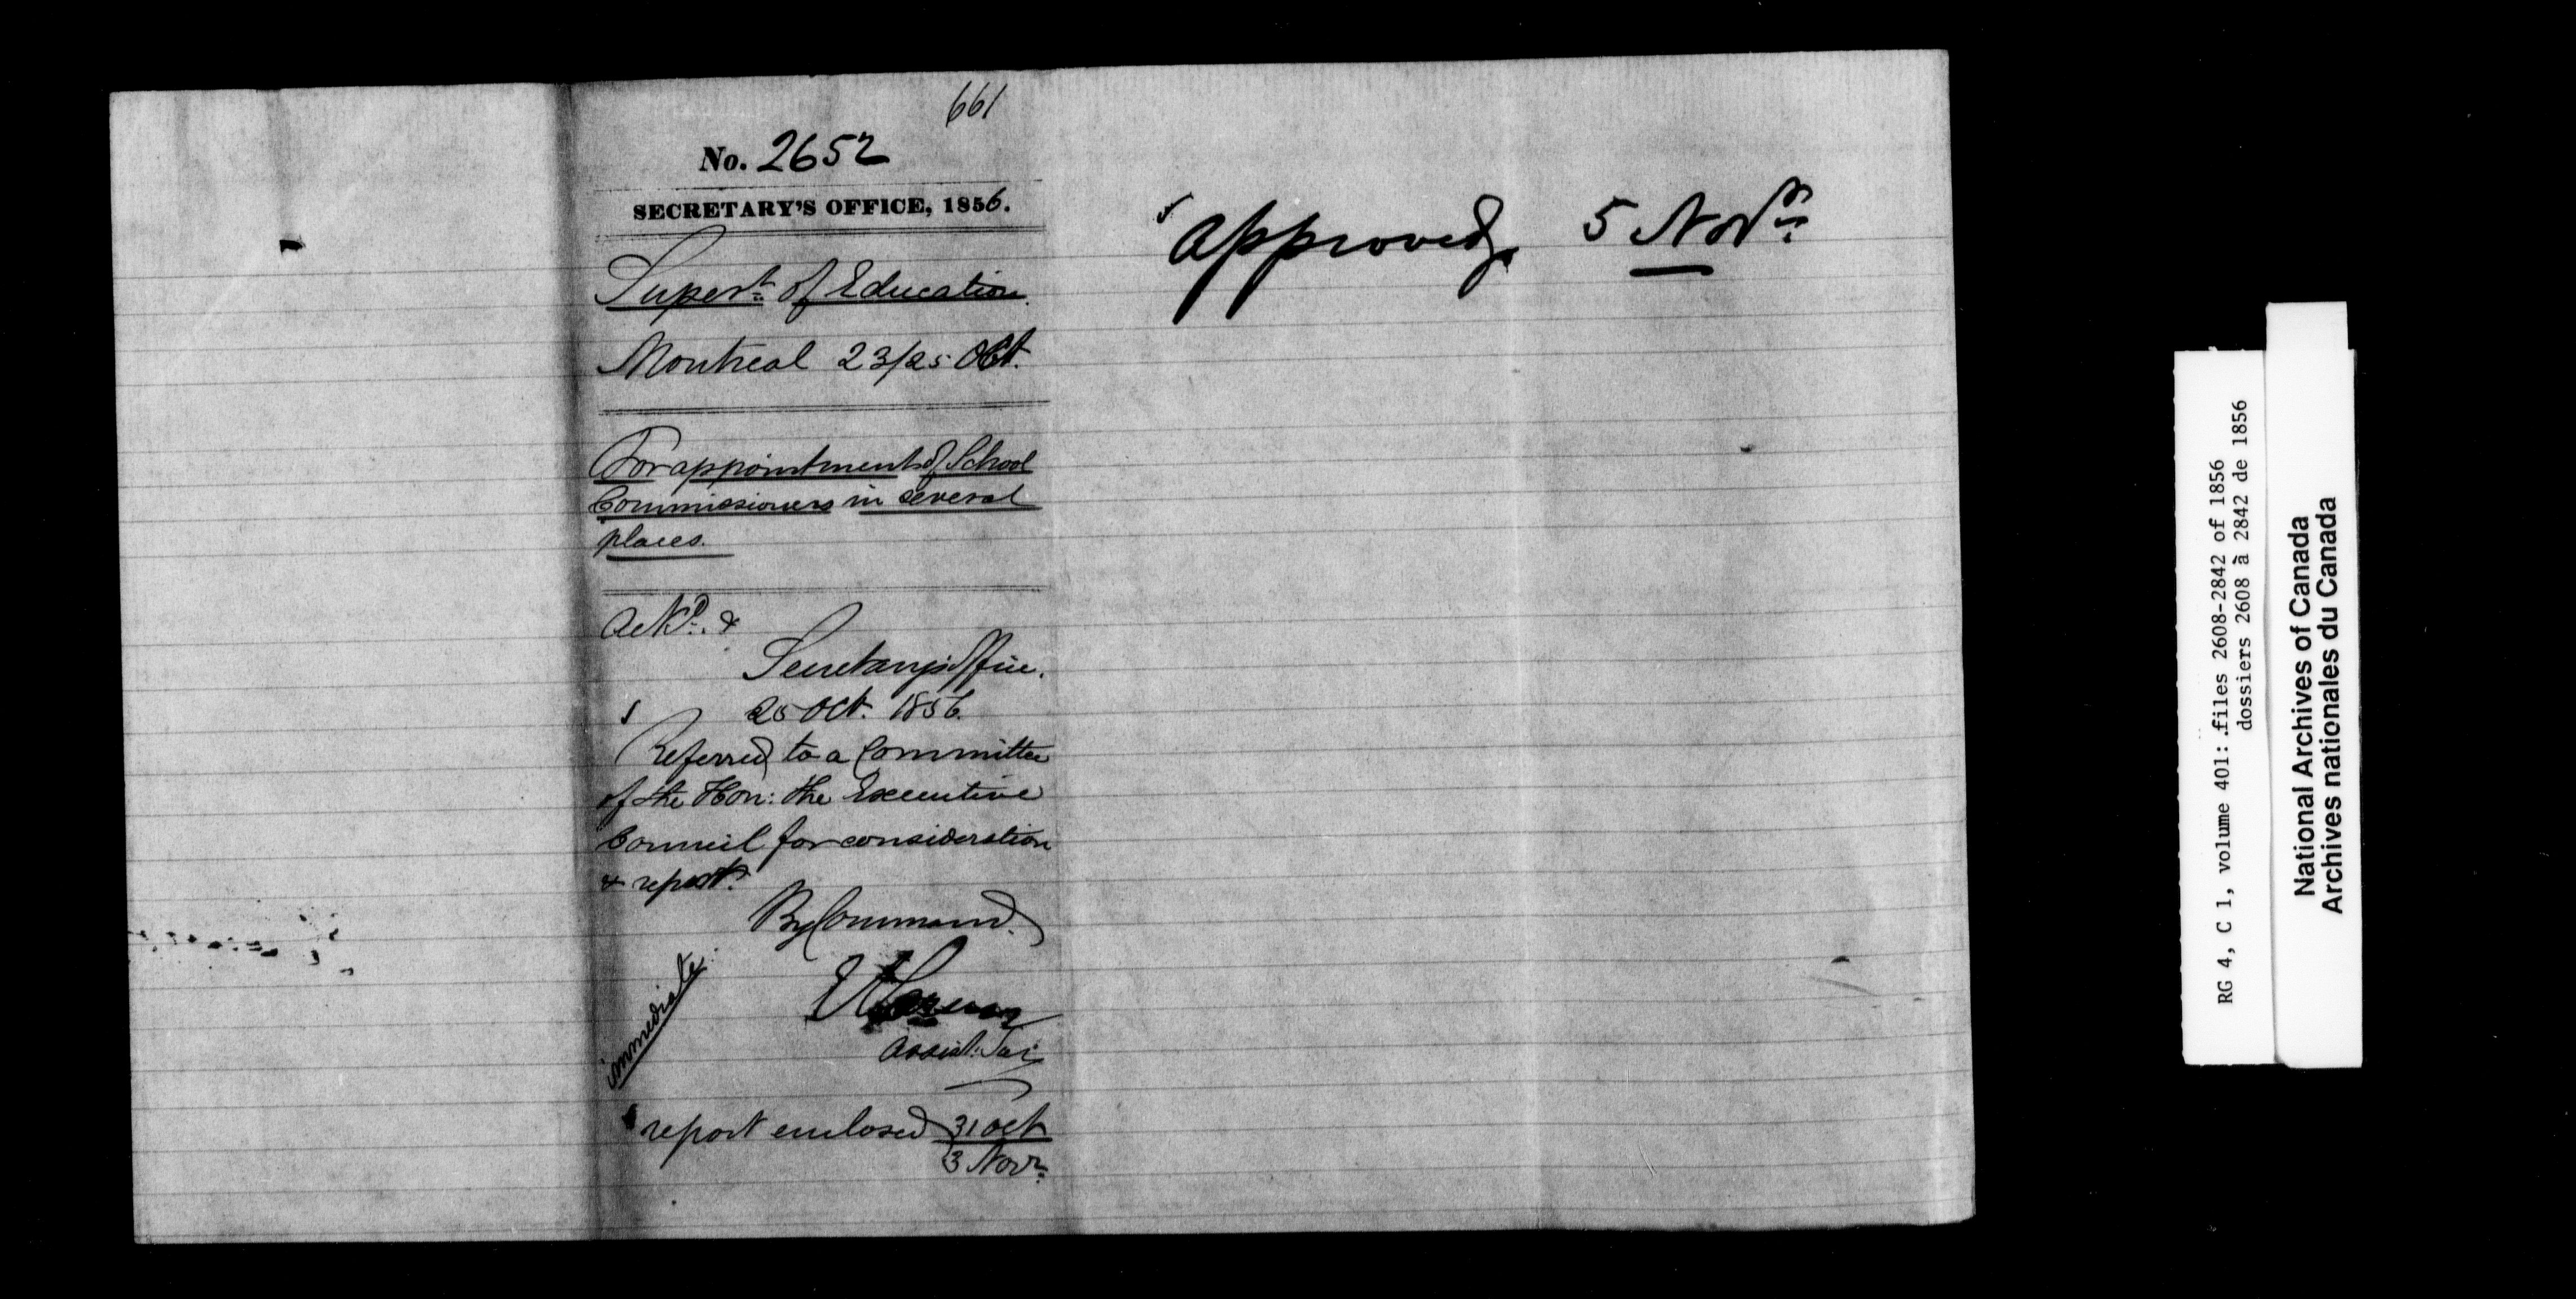 661
No. 2652
SECRETARY'S OFFICE, 1856.
Supert. of Education.
Montreal 23/25 Oct.
For appointment of School
Commissioners in several
places.
Ackd. &
Secretary's Office.
25 Oct. 1856.
Referred to a Committee
of the Hon: the Executive
Council for consideration
& report.
By Command.
Assist: Sec:
immediate
report enclosed 31 Oct
3 Novr.
approved, 5 Novr.
RG 4, C 1, volume 401: files 2608-2842 of 1856
dossiers 2608 à 2842 de 1856
National Archives of Canada
Archives nationales du Canada